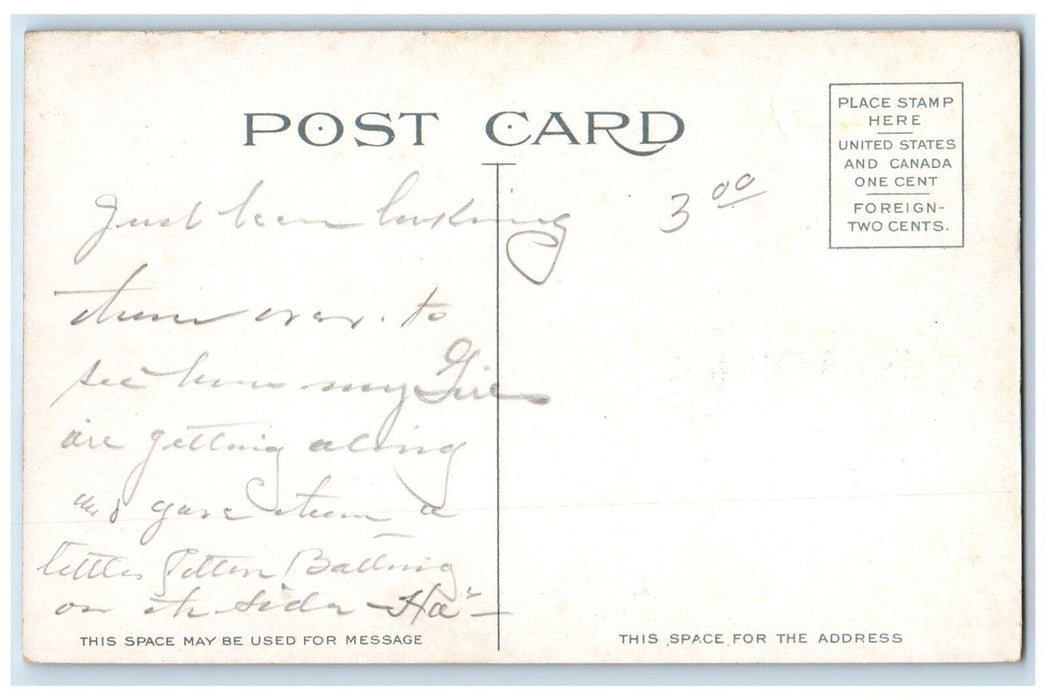 POST CARD
PLACE STAMP
HERE
UNITED STATES
AND CANADA
ONE CENT
FOREIGN-
TWO CENTS.
3 00
Just been looking
them over. to
see how my Girls
are getting along
and gave them a
little Batting
on the side Ha-
THIS SPACE MAY BE USED FOR MESSAGE
THIS SPACE FOR THE ADDRESS